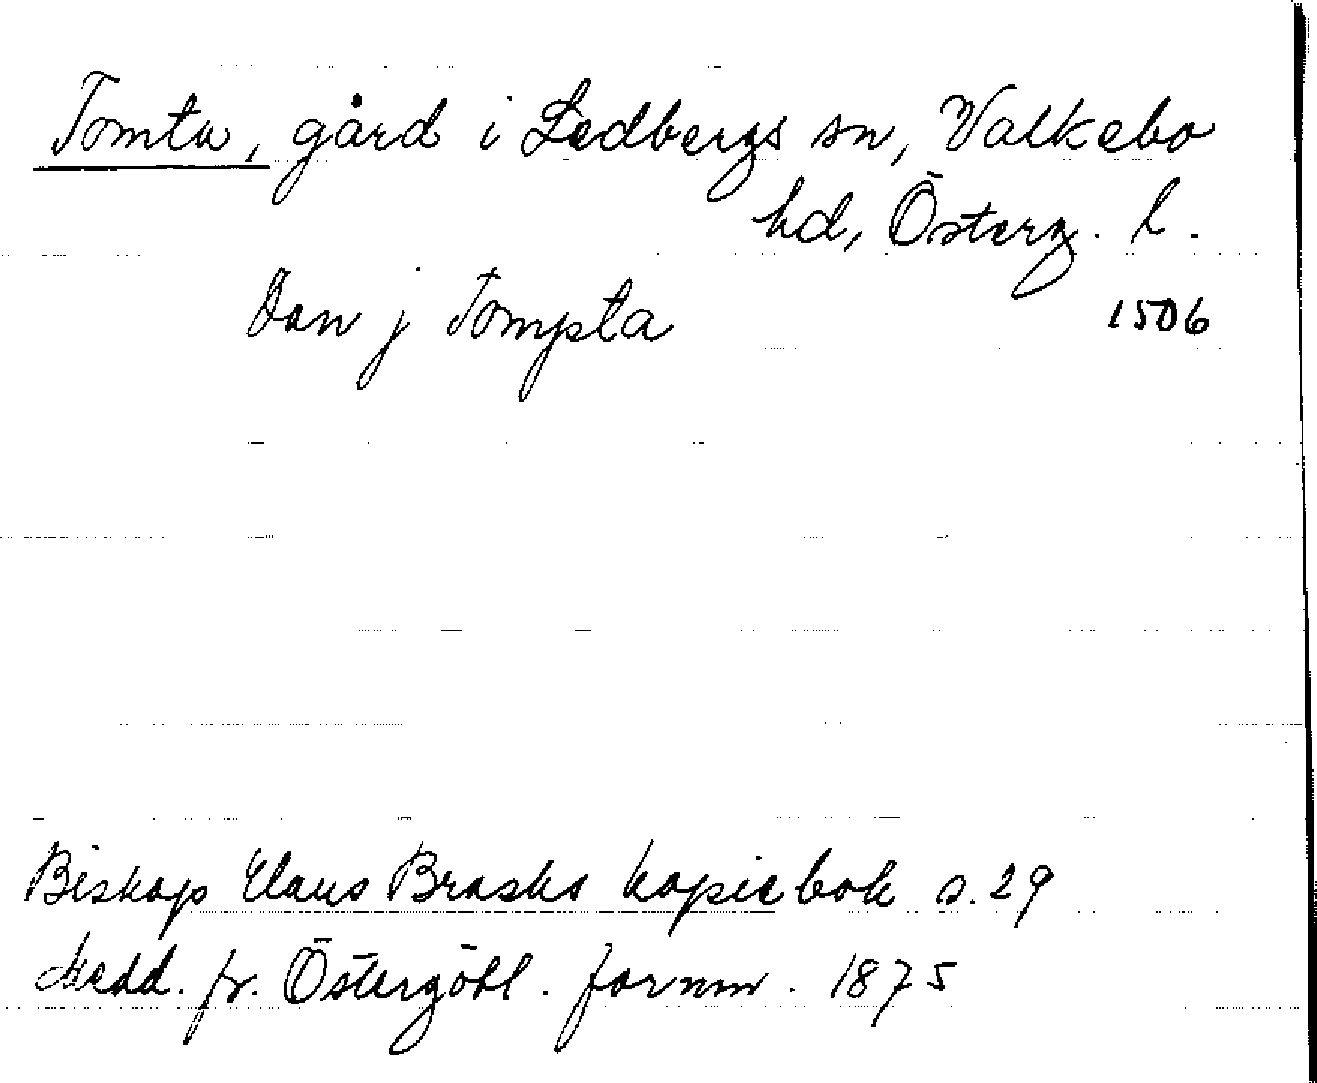 Tomta, gård i Ledbergs sn, Valkebo
hd, Österg. l.
Jon j Tompta 1506
Biskop Claus Brasks kopiebok s. 29
Medd. fr. Östergötl. fornm. 1875